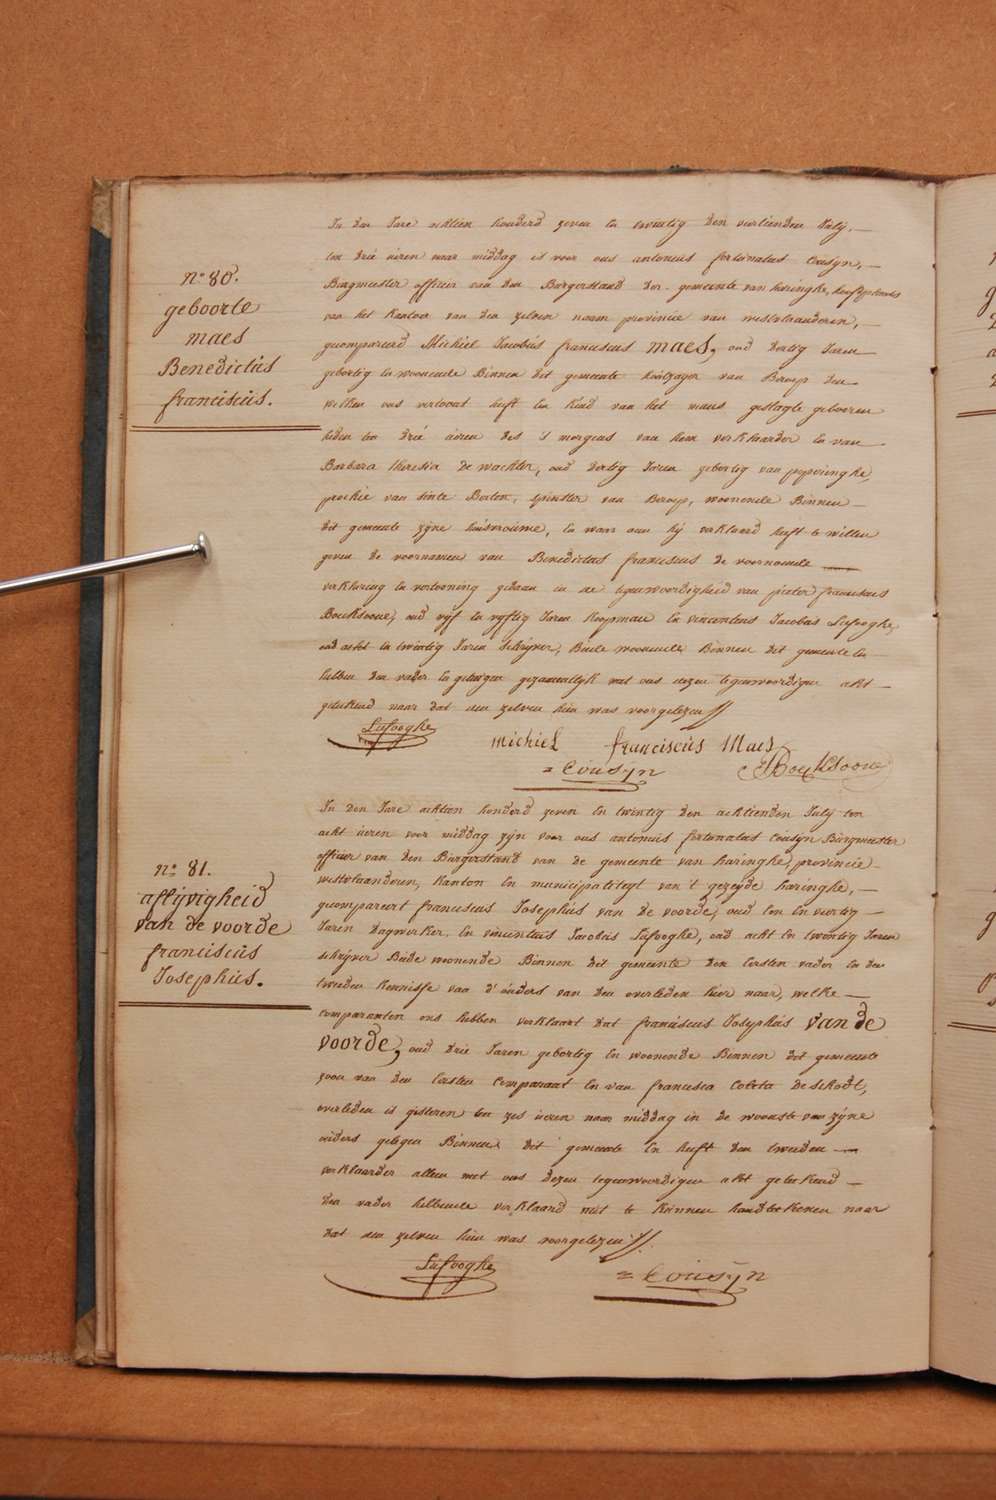 N.o 80.
geboorte
maes
Benedictus
franciscus.
In den Jare achtien honderd zeven en twintig den veertienden July,
ten drie uren naar middag is voor ons antonius fortunatus Cousyn,
Burgmeester officier van den Burgerstand der gemeente van haringhe, hoofdplaets
van het Kanton van den zelven naam provincie van westvlaanderen,
gecompareerd Michiel Jacobus franciscus maes, oud dertig Jaren
gebortig en woonende Binnen dit gemeente van Beroep den
welken ons vertoont heeft een kind van het mans geslagte geboren
heden ten drie uren des 's morgens van hem verklaarder en van
Barbara theresia de wachter, oud dertig Jaren gebortig van popringhe,
prochie van sinte Berten, spinster van Beroep, woonende Binnen
dit gemeente zyne huisvrouwe, en waar aan hy verklaard heeft te willen
geven de voornamen van Benedictus franciscus de voornoemde
verklaring en vertooning gedaan in de tegenwoordigheid van pieter franciscus
Boucksoone, oud vyf en vyftig Jaren Koopman en vincentius Jacobus Lafooghe,
oud acht en twintig Jaren schryver, Beede woonende Binnen dit gemeente en
hebben den vader en getuigen gezamentlyk met ons dezen tegenwoordigen akt
geteekend naar dat den zelven hun was voorgelezen //
Lafooghe
michiel franciscus Maes
= Cousyn Boucksoone
n.o 81.
aflijvigheid
van de voorde
franciscus
Josephus.
In den Jare achtien honderd zeven en twintig den achtienden July ten
acht uren voor middag zyn voor ons antonius fortunatus Cousyn Burgmeester
officier van den Burgerstand van de gemeente van haringhe, provincie
westvlaanderen, Kanton en municipaliteyt van 't gezeyde haringhe,
gecompareert franciscus Josephus van de voorde, oud een en veertig
Jaren dagwerker en vincentius Jacobus Lafooghe, oud acht en twintig Jaren
schryver Beede woonende Binnen dit gemeente den eersten vader en den
tweeden kennisse van d'ouders van den overleden hier naar, welke
comparanten ons hebben verklaart dat franciscus Josephus van de
voorde, oud drie Jaren gebortig en woonende Binnen dit gemeente
zoon van den eersten comparant en van francisca Coleta de schodt,
overleden is gisteren ten zes uren naar middag in de woonste van zyne
ouders gelegen Binnen dit gemeente en heeft den tweeden
verklaarder alleen met ons dezen tegenwoordigen akt geteekend
den vader hebbende verklaard niet te kunnen handteekenen naar
dat den zelven hun was voorgelezen //.
Lafooghe
= Cousyn